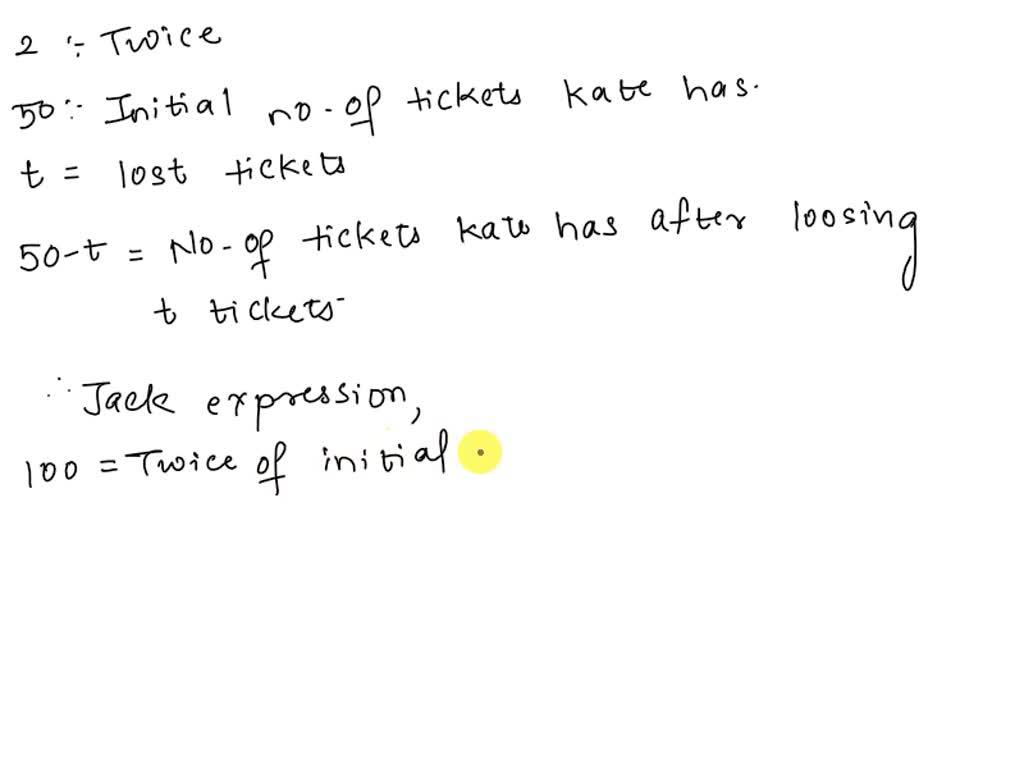 2 : Twice
50 : Initial no. of tickets kate has.
t = lost tickets
50-t = No. of tickets kate has after loosing
t tickets
∴ Jack expression,
100 = Twice of initial